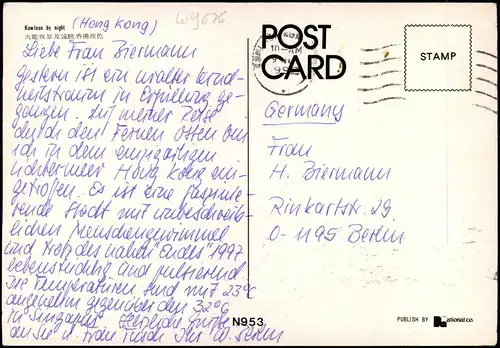 Kowloon by night (Hong Kong)
九龍夜景及遠眺香港夜色
WY076
Liebe Frau Biermann
gestern ist ein uralter Kind-
heitstraum in Erfüllung ge-
gangen. Auf meiner Reise
durch den Fernen Osten bin
ich in dem einzigartigen
Hong Kong ein-
getroffen. Es ist eine faszinie-
rende Stadt mit unbeschreib-
lichen Menschengewimmel
und trotz des nahen "Endes" 1997
lebenslustig und pulsierend.
Die Temperaturen sind mit 23°C
angenehm gegenüber den 32°C
in Singapur. Herzliche Grüße
an Sie u. Frau Ihr W.
POST
CARD
STAMP
10-AM
Germany
Frau
H. Biermann
Rinkartstr. 29
O-1195 Berlin
N953
PUBLISH BY National co.